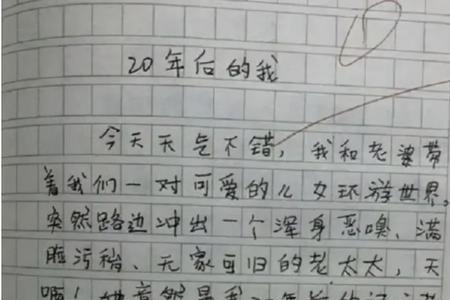 20年后的我
今天天气不错，我和老婆带
着我们一对可爱的儿女环游世界。
突然路边冲出一个浑身恶嗅、满
脸污秽、无家可归的老太太，天